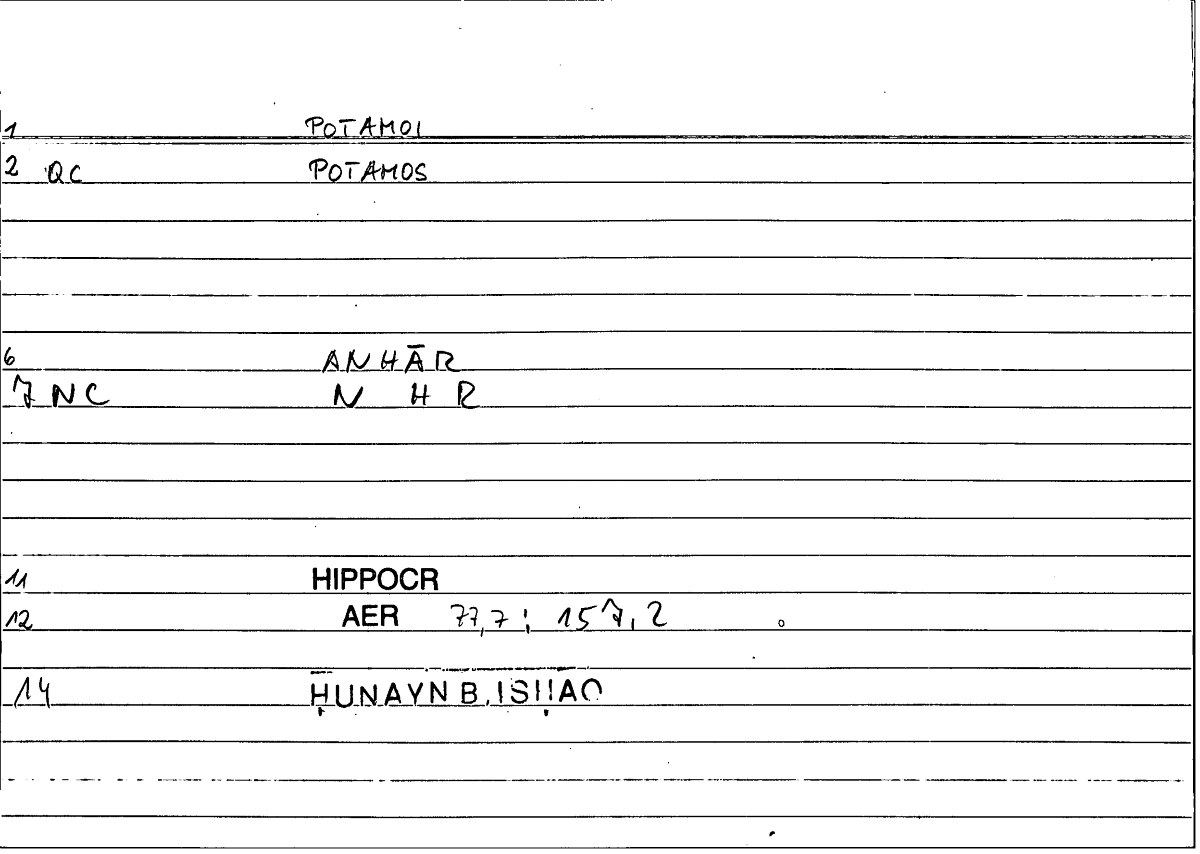 1 POTAMOI
2 QC POTAMOS
6 ANHĀR
7 NC N H R
11 HIPPOCR
12 AER 77,7; 157,2
14 ḤUNAYN B. ISḤAQ